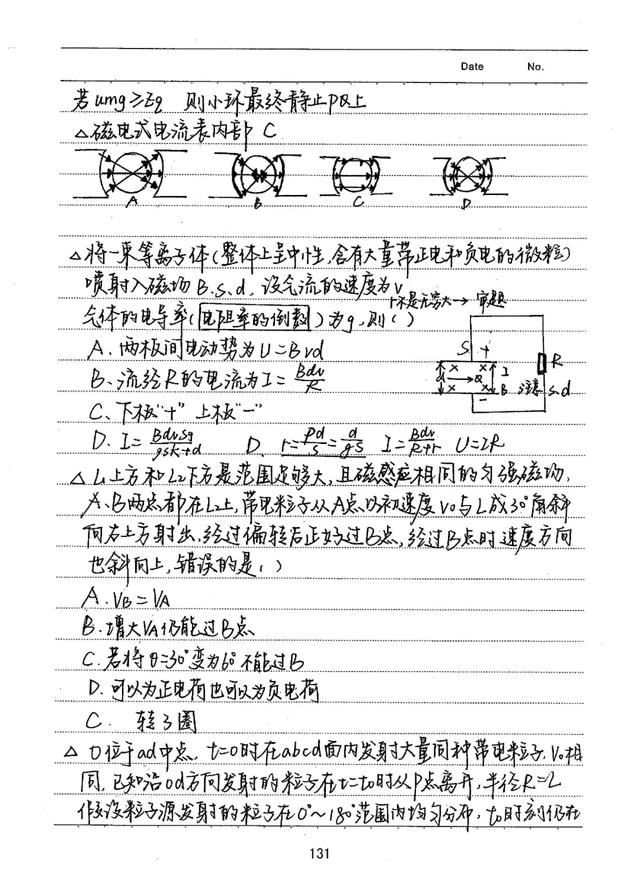 Date No.
若umg≥Eq 则小环最终静止P以上
△磁电式电流表内部 C
A B C D
△将一束等离子体(整体上呈中性,含有大量带正电和负电的微粒)
喷射入磁场B.S.d,设气流的速度为v
r不是无穷大→审题
气体的电导率(电阻率的倒数)为g,则( )
A.两板间电动势为U=Bvd
B.流经R的电流为I=Bdv/R
C.下板"+"上板"-"
S + R
d I B
注意S.d
D.I=BdvSg/gSR+d D. r=ρd/S=d/gS I=Bdv/R+r U=IR
△L1上方和L2下方是范围足够大,且磁感应相同的匀强磁场,
A、B两点都在L2上,带电粒子从A点以初速度v0与L成30°角斜
向右上方射出,经过偏转后正好过B点,经过B点时速度方向
也斜向上,错误的是( )
A.VB=VA
B.增大VA仍能过B点
C.若将θ=30°变为60°不能过B
D.可以为正电荷也可以为负电荷
C. 转3圈
△O位于ad中点,t=0时在abcd面内发射大量同种带电粒子,V0相
同,已知沿od方向发射的粒子在t=t0时从P点离开,半径R=L
假设粒子源发射的粒子在0°~180°范围内均匀分布,t0时刻仍在
131